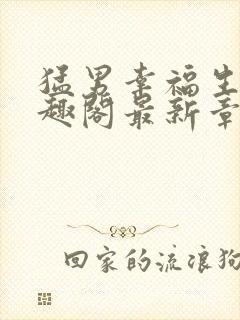 猛男幸福生
趣阁最新章
回家的流浪狗